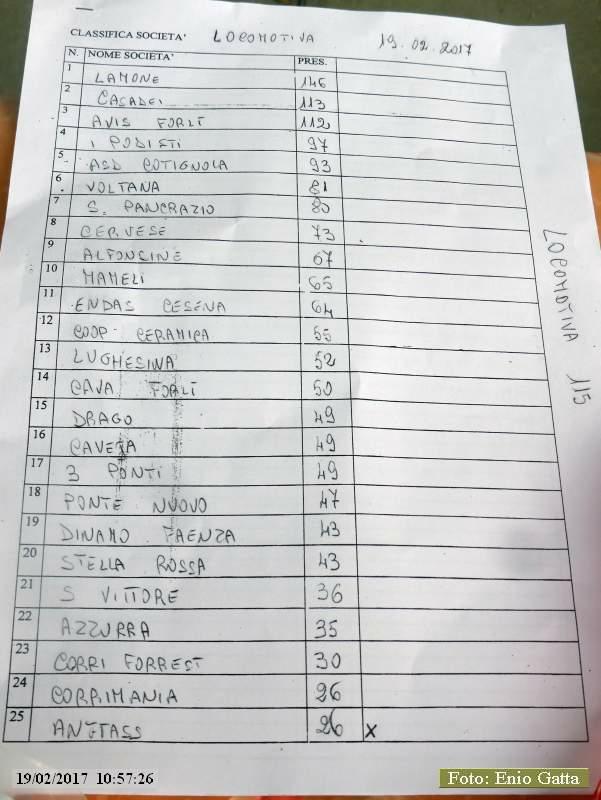 CLASSIFICA SOCIETA' LOCOMOTIVA 19.02.2017
N. NOME SOCIETA' PRES.
1 LAMONE 146
2 CASADEI 113
3 AVIS FORLÌ 112
4 I PODISTI 97
5 ASD COTIGNOLA 93
6 VOLTANA 81
7 S. PANCRAZIO 80
8 CERVESE 73
9 ALFONSINE 67
10 MAMELI 65
11 ENDAS CESENA 64
12 COOP CERAMICA 55
13 LUGHESINA 52
14 CAVA FORLÌ 50
15 DRAGO 49
16 CAVEJA 49
17 3 PONTI 49
18 PONTE NUOVO 47
19 DINAMO FAENZA 43
20 STELLA ROSSA 43
21 S VITTORE 36
22 AZZURRA 35
23 CORRI FORREST 30
24 CORRIMANIA 26
25 26 X
LOCOMOTIVA 115
19/02/2017 10:57:26
Foto: Enio Gatta